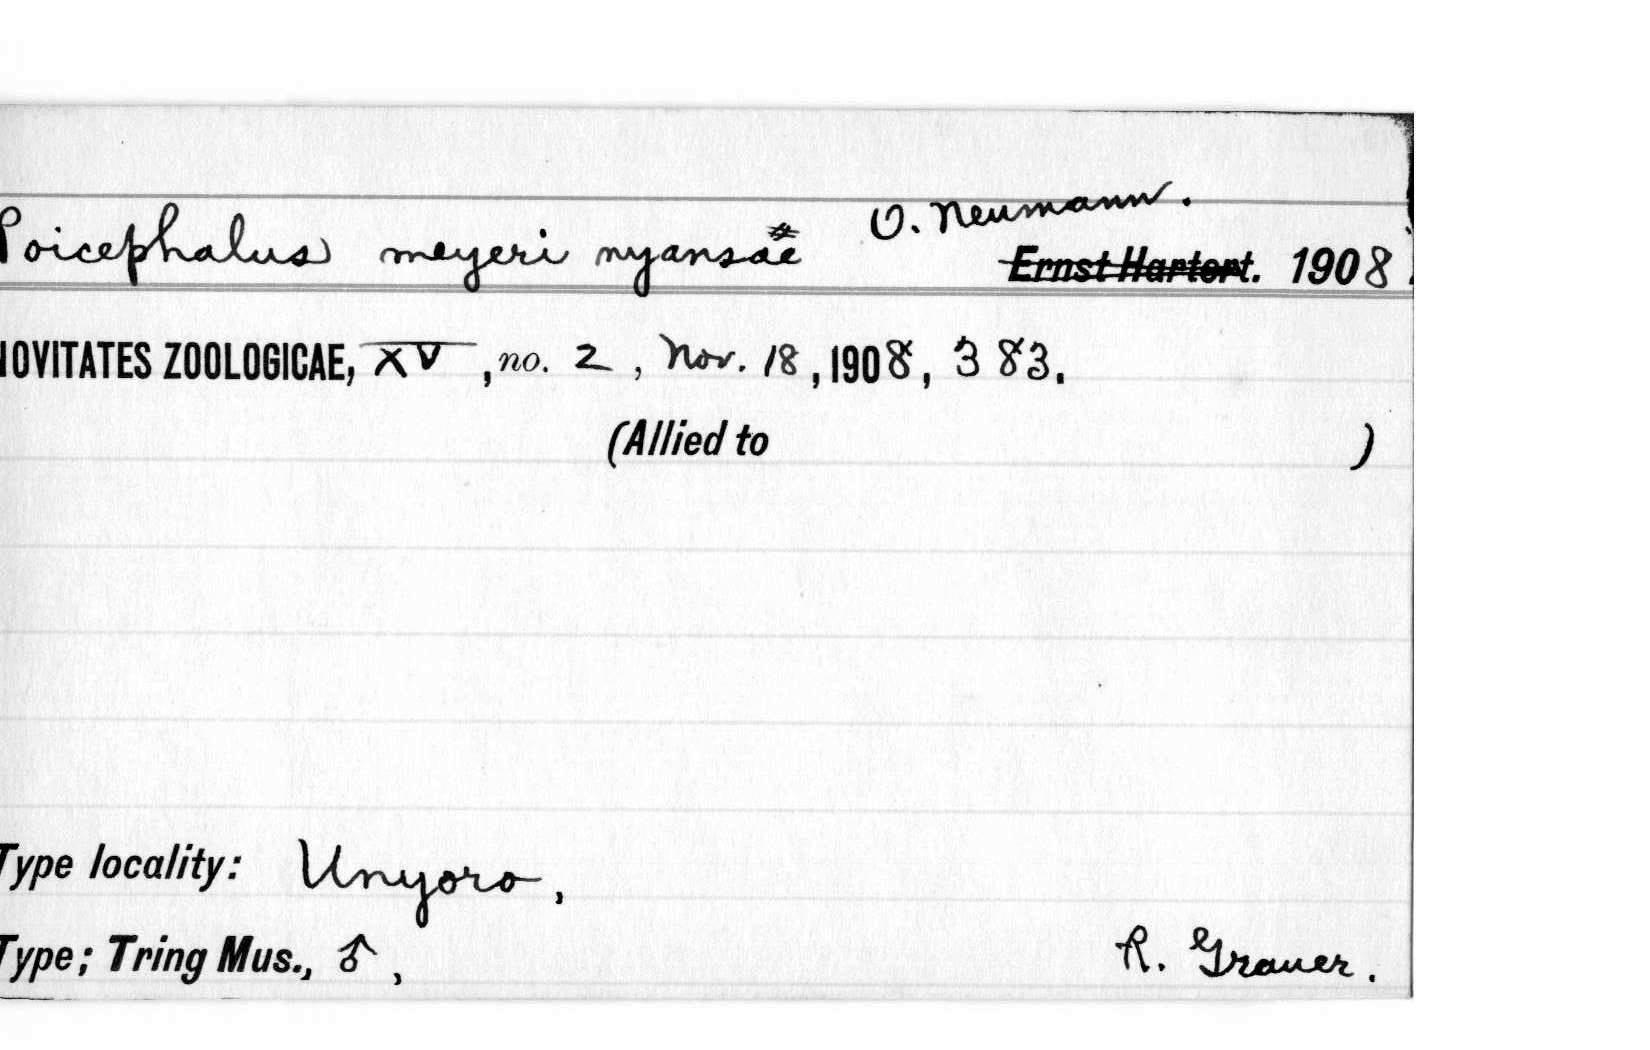 Poicephalus meyeri nyansae O. Neumann.
Ernst Hartert. 1908.
NOVITATES ZOOLOGICAE, XV, no. 2, Nov. 18, 1908, 383.
(Allied to )
Type locality: Unyoro,
Type; Tring Mus., ♂, R. Grauer.